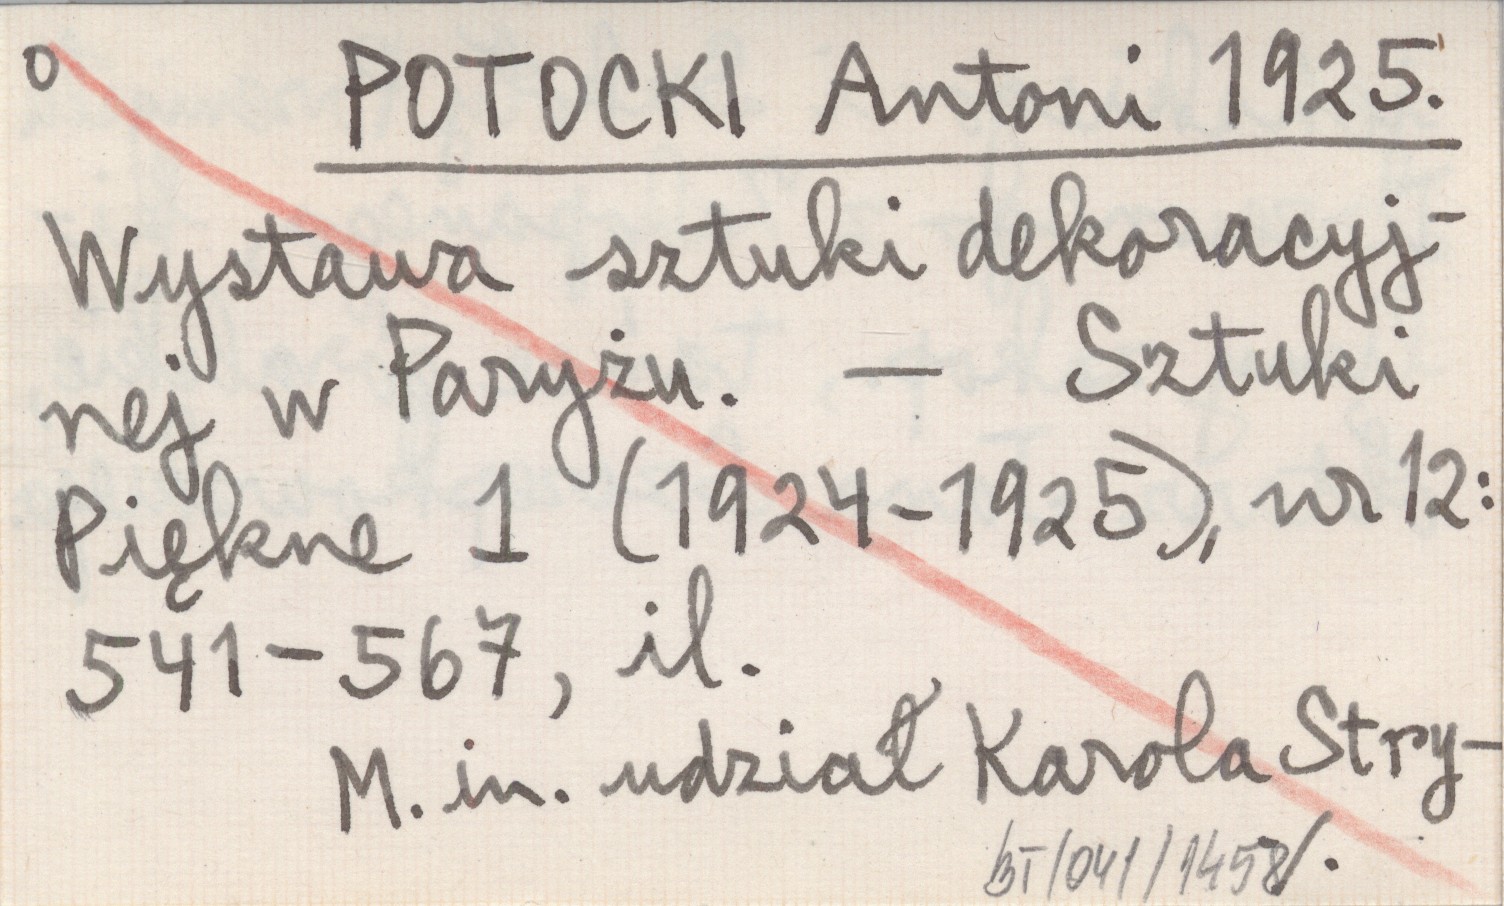 o POTOCKI Antoni 1925.
Wystawa sztuki dekoracyj-
nej w Paryżu. — Sztuki
Piękne 1 (1924-1925), nr 12:
541-567, il.
M. in. udział Karola Stry-
BT/041/1458/.